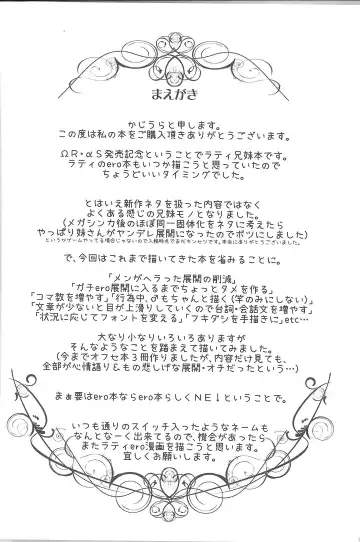 まえがき
かじうらと申します。
この度は私の本をご購入頂きありがとうございます。
ΩR・αS発売記念ということでラティ兄妹本です。
ラティのero本もいつか描こうと思っていたので
ちょうどいいタイミングでした。
とはいえ新作ネタを扱った内容ではなく
よくある感じの兄妹モノとなりました。
(メガシンカ後のほぼ同一固体化をネタに考えたら
やっぱり姉さんがヤンデレ展開になったのでボツにしました)
というかゲームやってる場合じゃないので入稿時点でまだキンセツです。本当にありがとうございました。
で、今回はこれまで描いてきた本を省みることに。
「メンゲヘラった展開の削減」
「ガチero展開に入るまでちょっとタメを作る」
「コマ数を増やす」「行為中、♂もちゃんと描く(竿のみにしない)」
「文章が少ないと目が上滑りしていくので台詞・会話文を増やす」
「状況に応じてフォントを変える」「フキダシを手描きに」etc…
大なり小なりいろいろありますが
そんなようなことを踏まえて描いてみました。
(今までオフセ本3冊作りましたが、内容だけ見ても、
全部が心情語りMもの悲しげな展開・オチだったという…)
まぁ要はero本ならero本らしくNE!ということで。
いつも通りのスイッチ入ったようなネームも
なんとなーく出来てるので、機会があったら
またラティero漫画を描こうと思います。
宜しくお願いします。